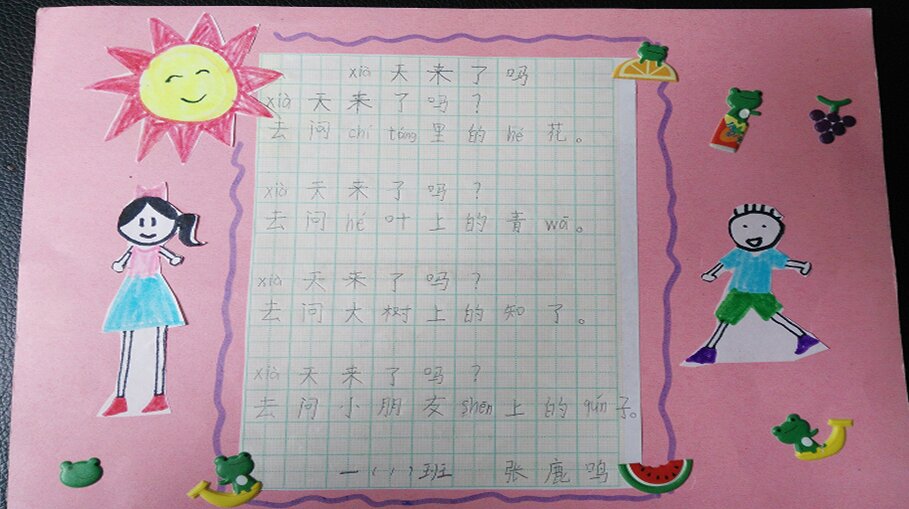 xià天来了吗
xià天来了吗？
去问chí táng里的hé花。
xià天来了吗？
去问hé叶上的青wā。
xià天来了吗？
去问大树上的知了。
xià天来了吗？
去问小朋友shēn上的qún子。
一（1）班 张鹿鸣